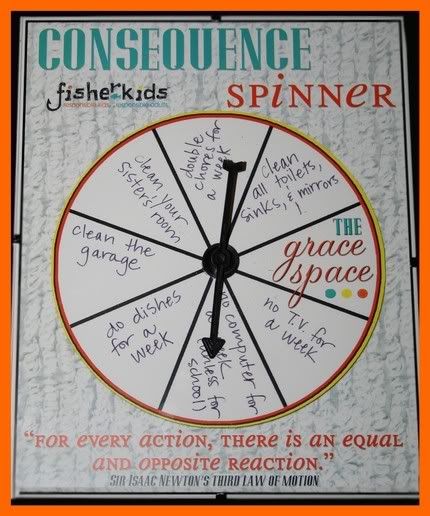 CONSEQUENCE
fisherkids
responsible kids...responsible adults
SPINNER
double
chores for
a week
clean
all toilets,
sinks, & mirrors
THE
grace
space
no T.V. for
a week
no computer for
a week
(unless for
school)
do dishes
for a
week
clean the
garage
clean your
sisters' room
"FOR EVERY ACTION, THERE IS AN EQUAL
AND OPPOSITE REACTION."
SIR ISAAC NEWTON'S THIRD LAW OF MOTION